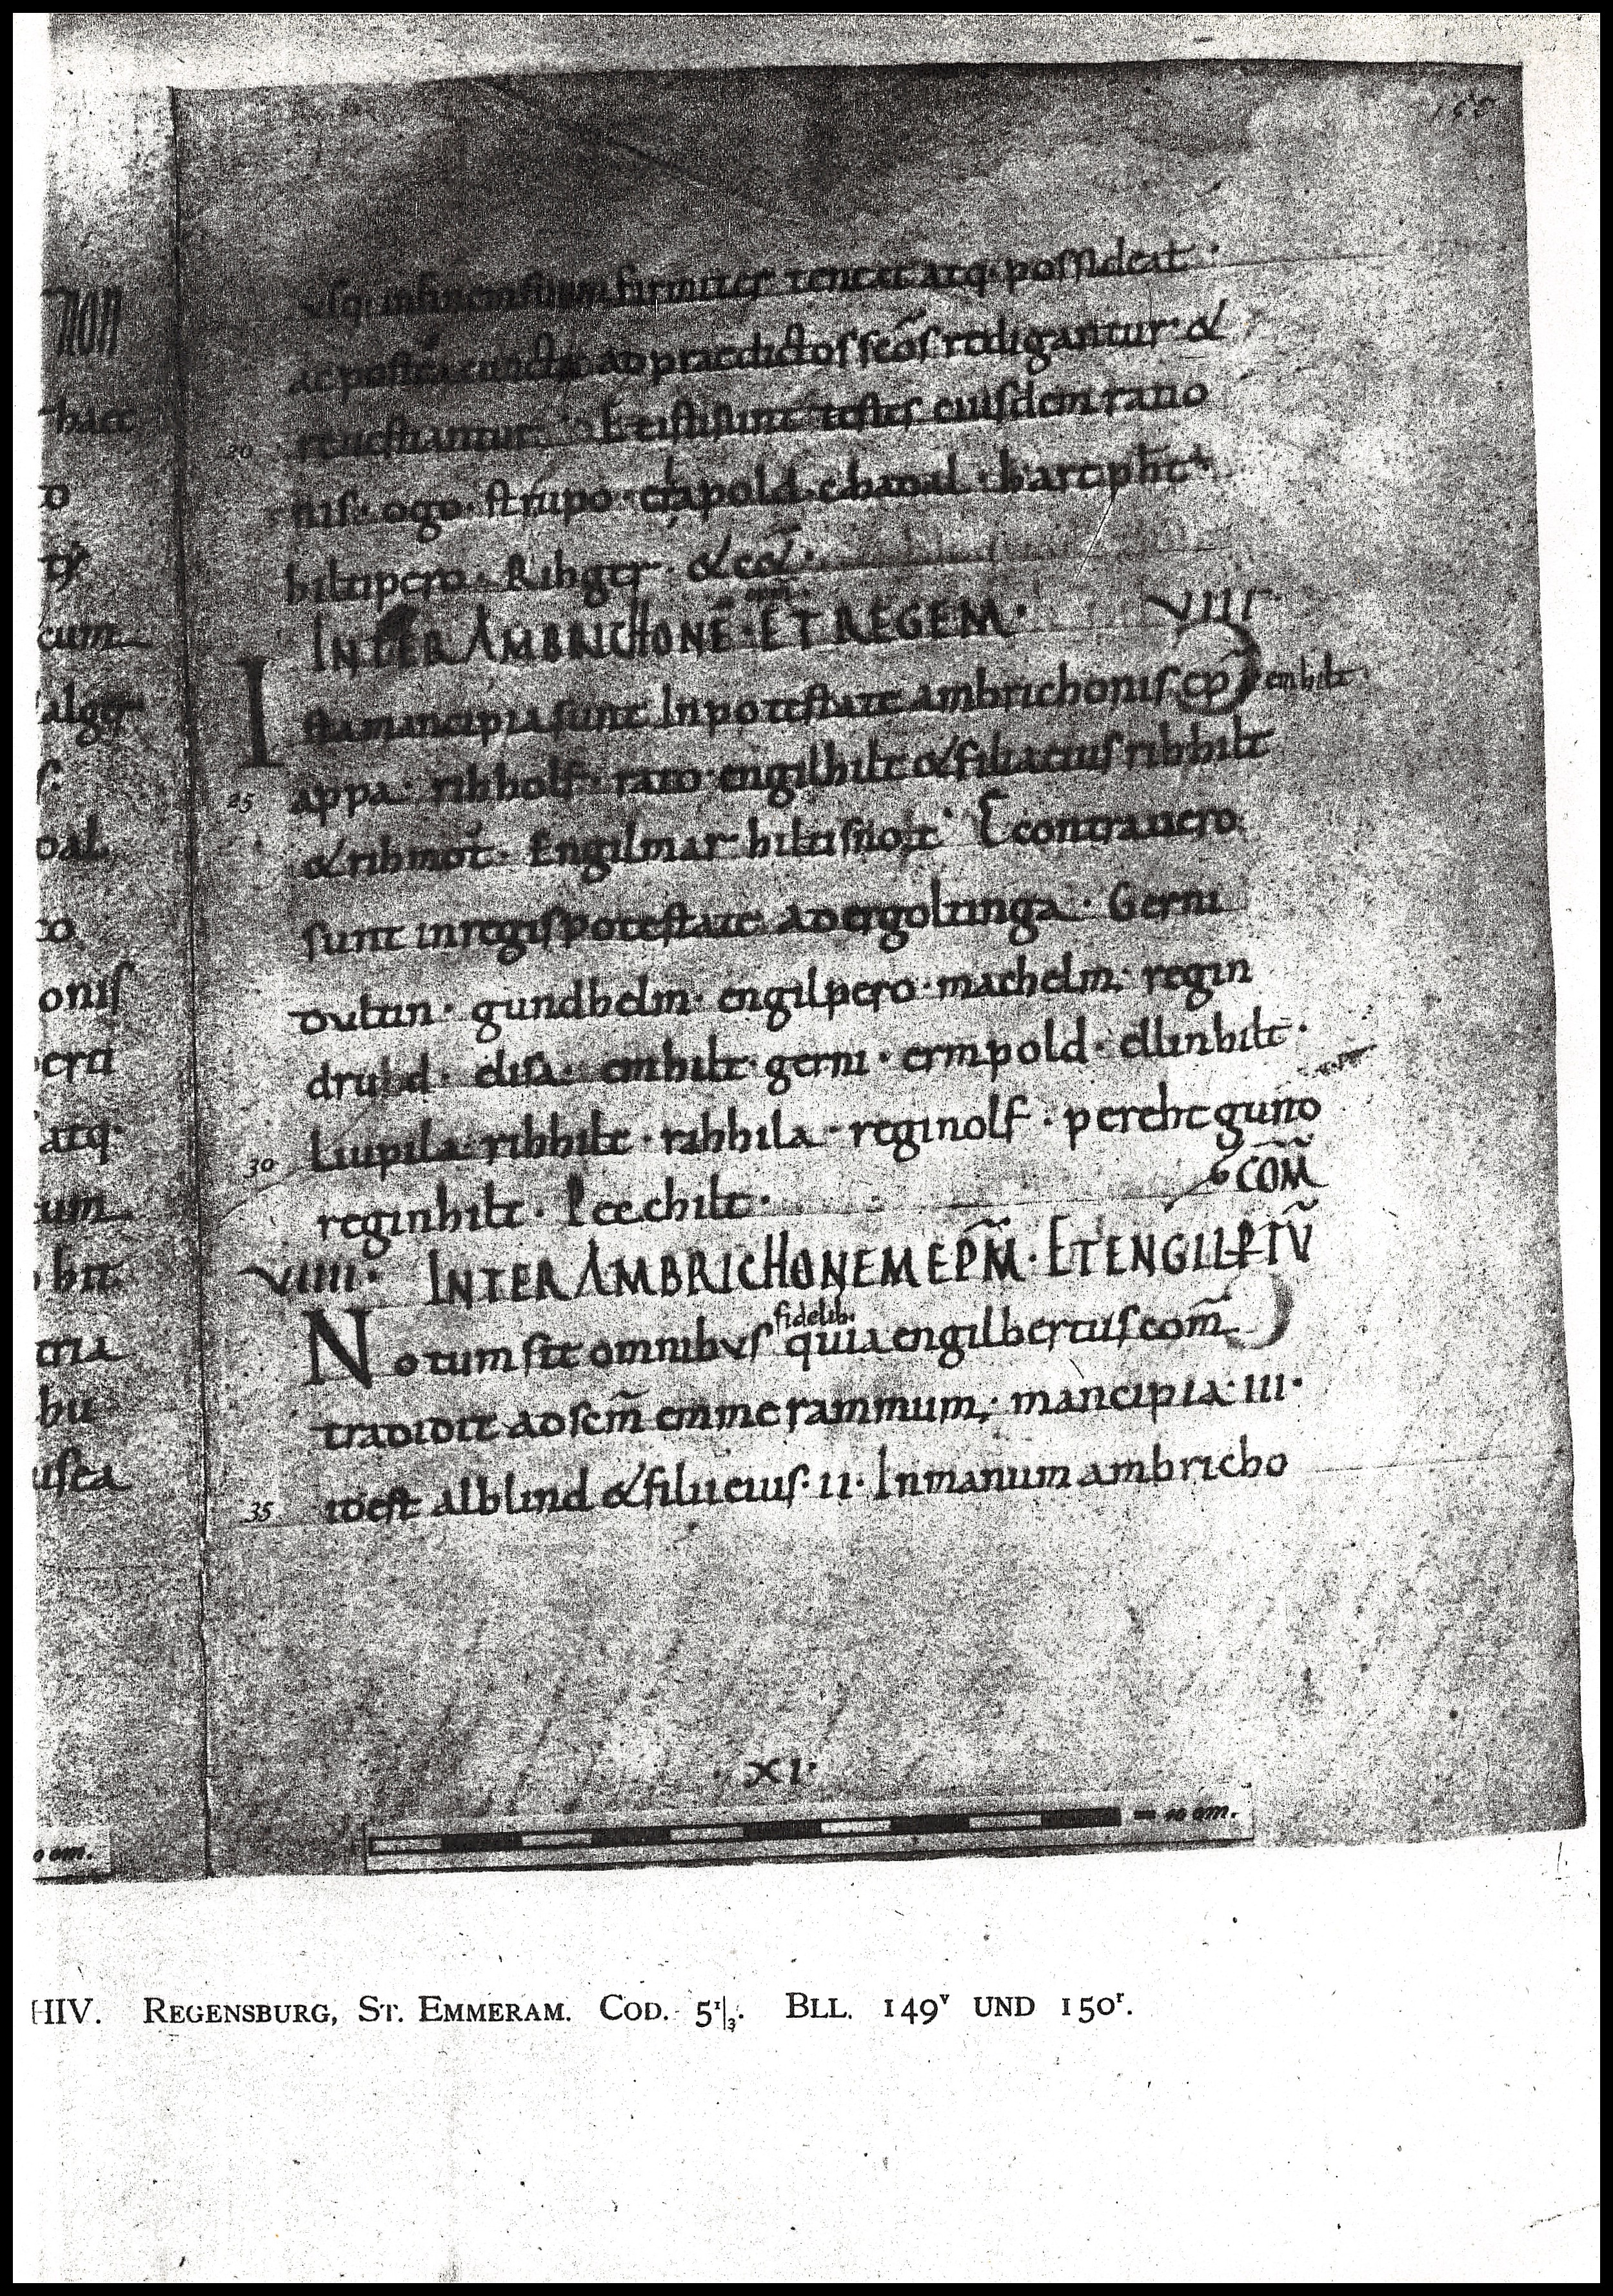 150
non
hact
o
cum
alger
oal
co
onis
erti
atq·
um
hit
tria
hu
usta
usq· in finem suum firmiter teneat atq· possideat ·
ac postea cuncta ad praedictos scōs redigantur &
20 revestiantur · Et isti sunt testes eiusdem ratio
nis · ogo · strupo · crapold · chadal · harcpht ·
hiltipero · Rihger · & cet̄ ·
INTER AMBRICHONĒ · epm̄ · ET REGEM · VIII ·
Ista mancipia sunt In potestate ambrichonis ep̄i emhilt ·
25 appa · rihholf · rato · engilhilt & filia eius rihhilt
& rihmot · Engilmar hiltisnot · E contra vero
sunt in regis potestate ad ergoltinga · Gerni
oultin · gundhelm · engilpero · machelm · regin
drud · elisa · emhilt · gerni · ermpold · ellinhilt ·
30 Liupila · rihhilt · rahhila · reginolf · perehtguno
reginhilt · Peechilt ·
COM̄
VIIII · INTER AMBRICHONEM EPM̄ · ET ENGILPTŪ
Notum sit omnibus fidelib· quia engilbertus com̄
tradidit ad scm̄ emmerammum · mancipia · III ·
35 id est alblind & filii eius · II · In manum ambricho
· XI ·
= 10 cm.
0 cm.
HIV. REGENSBURG, ST. EMMERAM. COD. 5¹|₃. BLL. 149ᵛ UND 150ʳ.